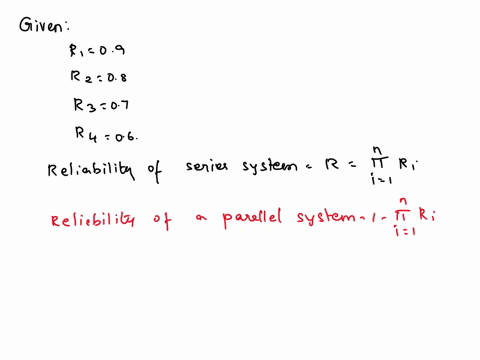 Given:
R1 = 0.9
R2 = 0.8
R3 = 0.7
R4 = 0.6.
Reliability of series system = R = n∏i=1 Ri
Reliebility of a parellel system = 1 - n∏i=1 Ri